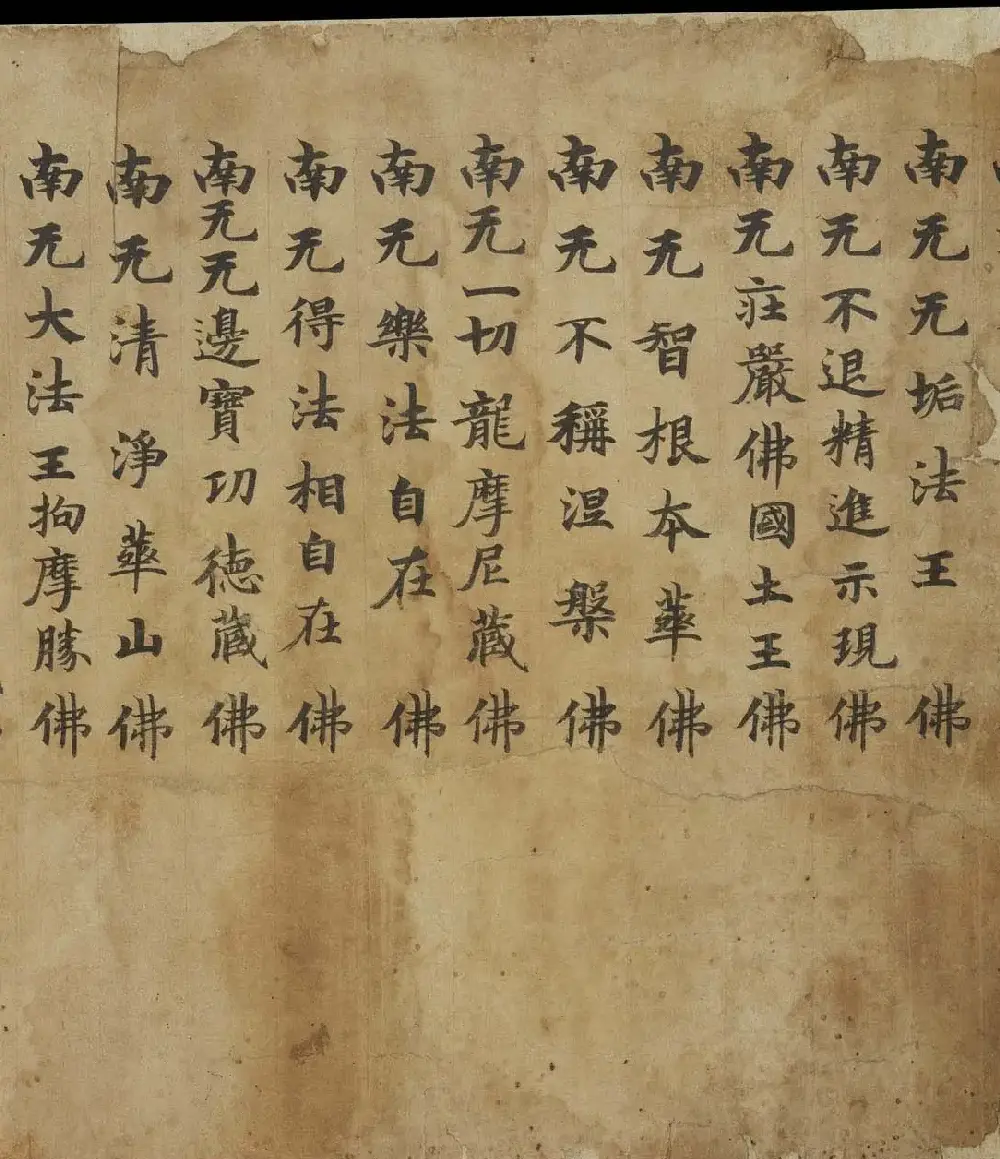 南无无垢法王佛
南无不退精進示現佛
南无莊嚴佛國土王佛
南无智根本華佛
南无不稱涅槃佛
南无一切龍摩尼藏佛
南无樂法自在佛
南无得法相自在佛
南无无邊寶功德藏佛
南无清淨華山佛
南无大法王拘摩勝佛